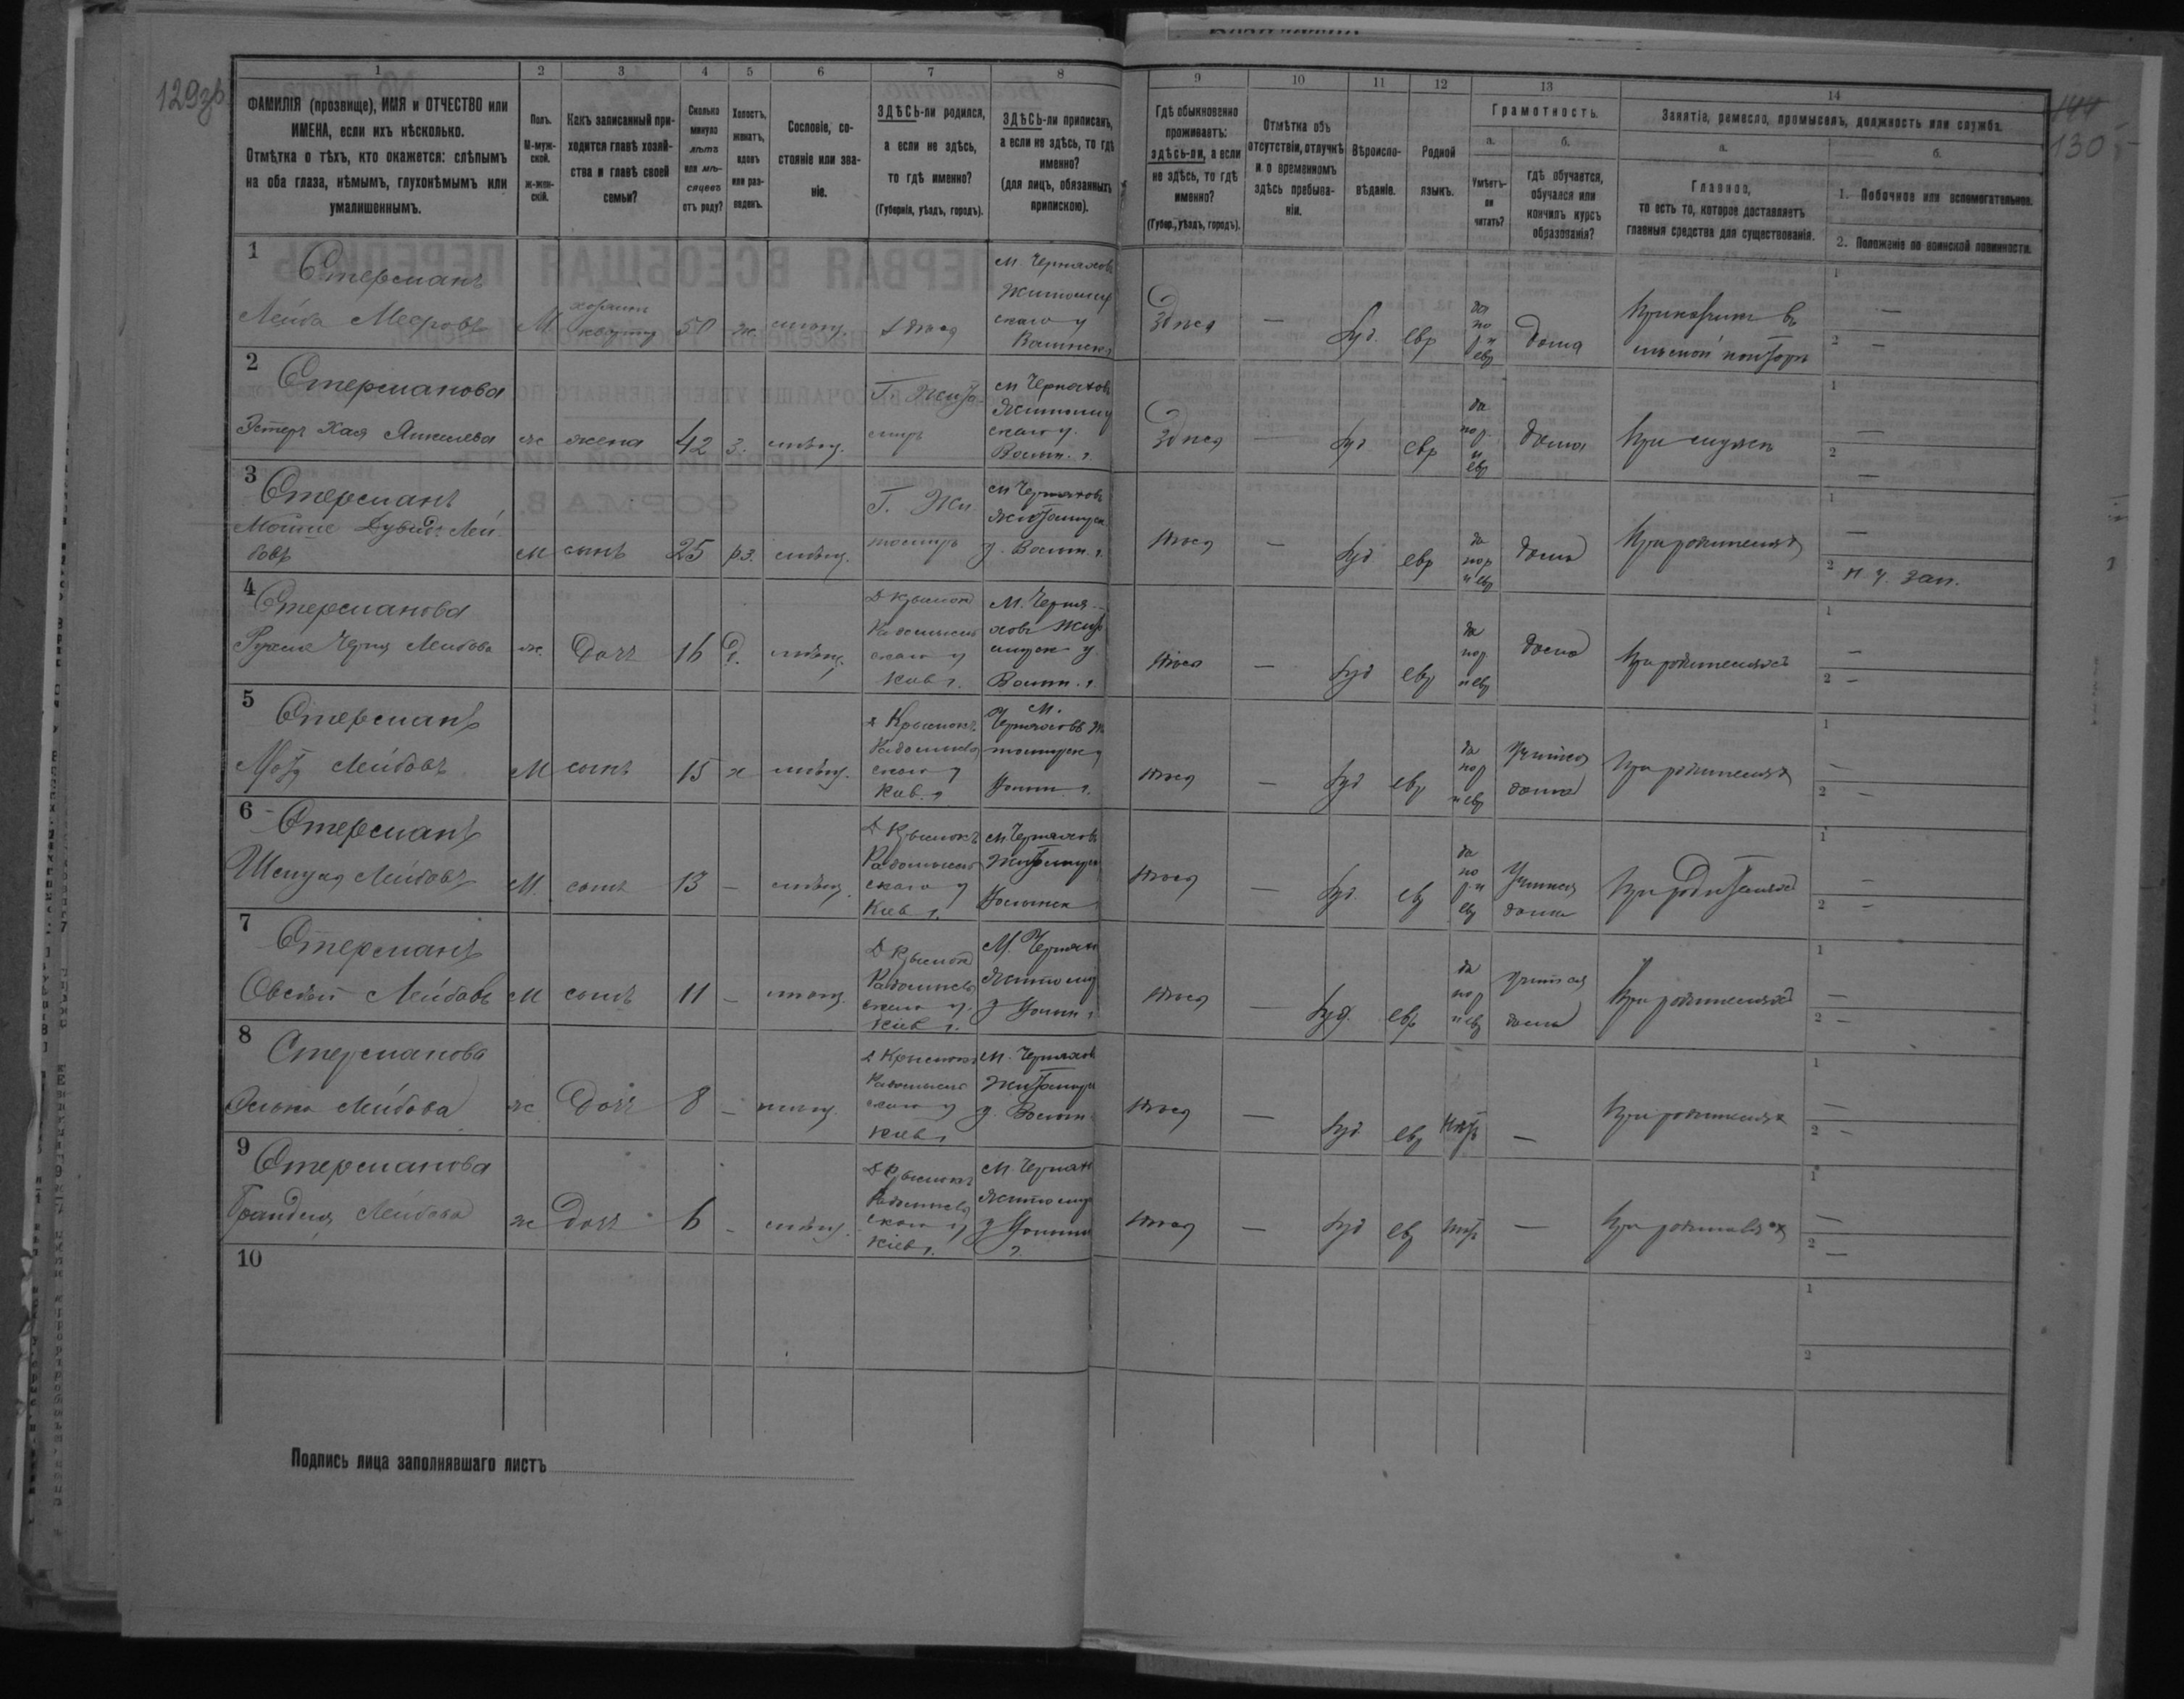 129зв.
144
130
1
2
3
4
5
6
7
8
9
10
11
12
13
14
ФАМИЛІЯ (прозвище), ИМЯ и ОТЧЕСТВО или
ИМЕНА, если ихъ нѣсколько.
Отмѣтка о тѣхъ, кто окажется: слѣпымъ
на оба глаза, нѣмымъ, глухонѣмымъ или
умалишеннымъ.
Полъ.
М-муж-
ской.
ж-жен-
скій.
Какъ записанный при-
ходится главѣ хозяй-
ства и главѣ своей
семьи?
Сколько
минуло
лѣтъ
или мѣ-
сяцевъ
отъ роду?
Холостъ,
женатъ,
вдовъ
или раз-
веденъ.
Сословіе, со-
стояніе или зва-
ніе.
ЗДѢСЬ-ли родился,
а если не здѣсь,
то гдѣ именно?
(Губернія, уѣздъ, городъ).
ЗДѢСЬ-ли приписанъ,
а если не здѣсь, то гдѣ
именно?
(для лицъ, обязанныхъ
припискою).
Гдѣ обыкновенно
проживаетъ:
здѣсь-ли, а если
не здѣсь, то гдѣ
именно?
(Губер., уѣздъ, городъ).
Отмѣтка объ
отсутствіи, отлучкѣ
и о временномъ
здѣсь пребыва-
ніи.
Вѣроиспо-
вѣданіе.
Родной
языкъ.
Грамотность.
а.
Умѣетъ-
ли
читать?
б.
гдѣ обучается,
обучался или
кончилъ курсъ
образованія?
Занятіе, ремесло, промыселъ, должность или служба.
а.
Главное,
то есть то, которое доставляетъ
главныя средства для существованія.
б.
1. Побочное или вспомогательное.
2. Положеніе по воинской повинности.
1
Стерманъ
Лейба Мееровъ
М
50
ж
мѣщ.
м. Черняховъ
Житомир
скаго у
Волынск г
Здѣся
—
Іуд.
евр
да
по
р и
евр
дома
Прикащик въ
лѣсной конторѣ
1 —
2 —
2
Стерманова
Эстеръ Хая Янкелева
ж
жена
42
з.
мѣщ.
Г. Жито
миръ
м Черняховъ
Житомир
скаго у.
Волын. г.
Здѣся
—
Іуд
евр
да
по р.
и
евр
дома
При мужѣ
1 —
2 —
3
Стерманъ
Мошие Дувидъ Лей
бовъ
м
сынъ
25
рз.
мѣщ.
Г. Жи
томиръ
м Черняховъ
Житомирск
у. Волын. г.
здѣся
—
Іуд
евр
да
по р
и евр
дома
При родителях
1 —
2 н. ч. зап.
4
Стерманова
Рухля Черня Лейбова
ж.
дочь
16
д.
мѣщ.
д Крымокъ
Радомысль
скаго у
Кіев г.
М. Черня-
ховъ Жит
омирск у.
Волын. г.
здѣся
—
Іуд
евр
да
по р
и евр
дома
При родителяхъ
1 —
2 —
5
Стерманъ
Лейбовъ
М
сынъ
15
х
мѣщ.
д Крымокъ
Радомысль
скаго у
Кіев. г.
М.
Черняховъ Жи
томирск у
Волын. г.
здѣся
—
Іуд
евр
да
по р
и евр
Учится
дома
При родителях
1 —
2 —
6
Стерманъ
Лейбовъ
М.
сынъ
13
—
мѣщ.
Д Крымокъ
Радомысль
скаго у
Кіев г.
м Черняховъ
Житомирск
Волынск
здѣся
—
Іуд.
евр
да
по
р и
евр
Учится
дома
При родителях
1 —
2 —
7
Стерманъ
Овсѣй Лейбовъ
М
сынъ
11
—
мѣщ.
Д Крымокъ
Радомысль
скаго у.
Кіев г.
М. Черняхо
Житомир
у Волын г
здѣся
—
Іуд.
евр
да
по р
и евр
учится
дома
При родителяхъ
1 —
2 —
8
Стерманова
Лейбова
ж
дочь
8
—
мѣщ.
д Крымокъ
Радомысль
скаго у
Кіев г
м. Черняхов
Житомирс
у. Волын
здѣся
—
Іуд
евр
нѣтъ
—
При родителях
1 —
2 —
9
Стерманова
Лейбова
ж
дочь
6
—
мѣщ.
д Крымокъ
Радомысль
скаго у
Кіев г.
М. Черняхо
Житомир
у Волын
г.
здѣся
—
Іуд
евр
нѣтъ
—
При родителях
1 —
2 —
10
1
2
Подпись лица заполнявшаго листъ